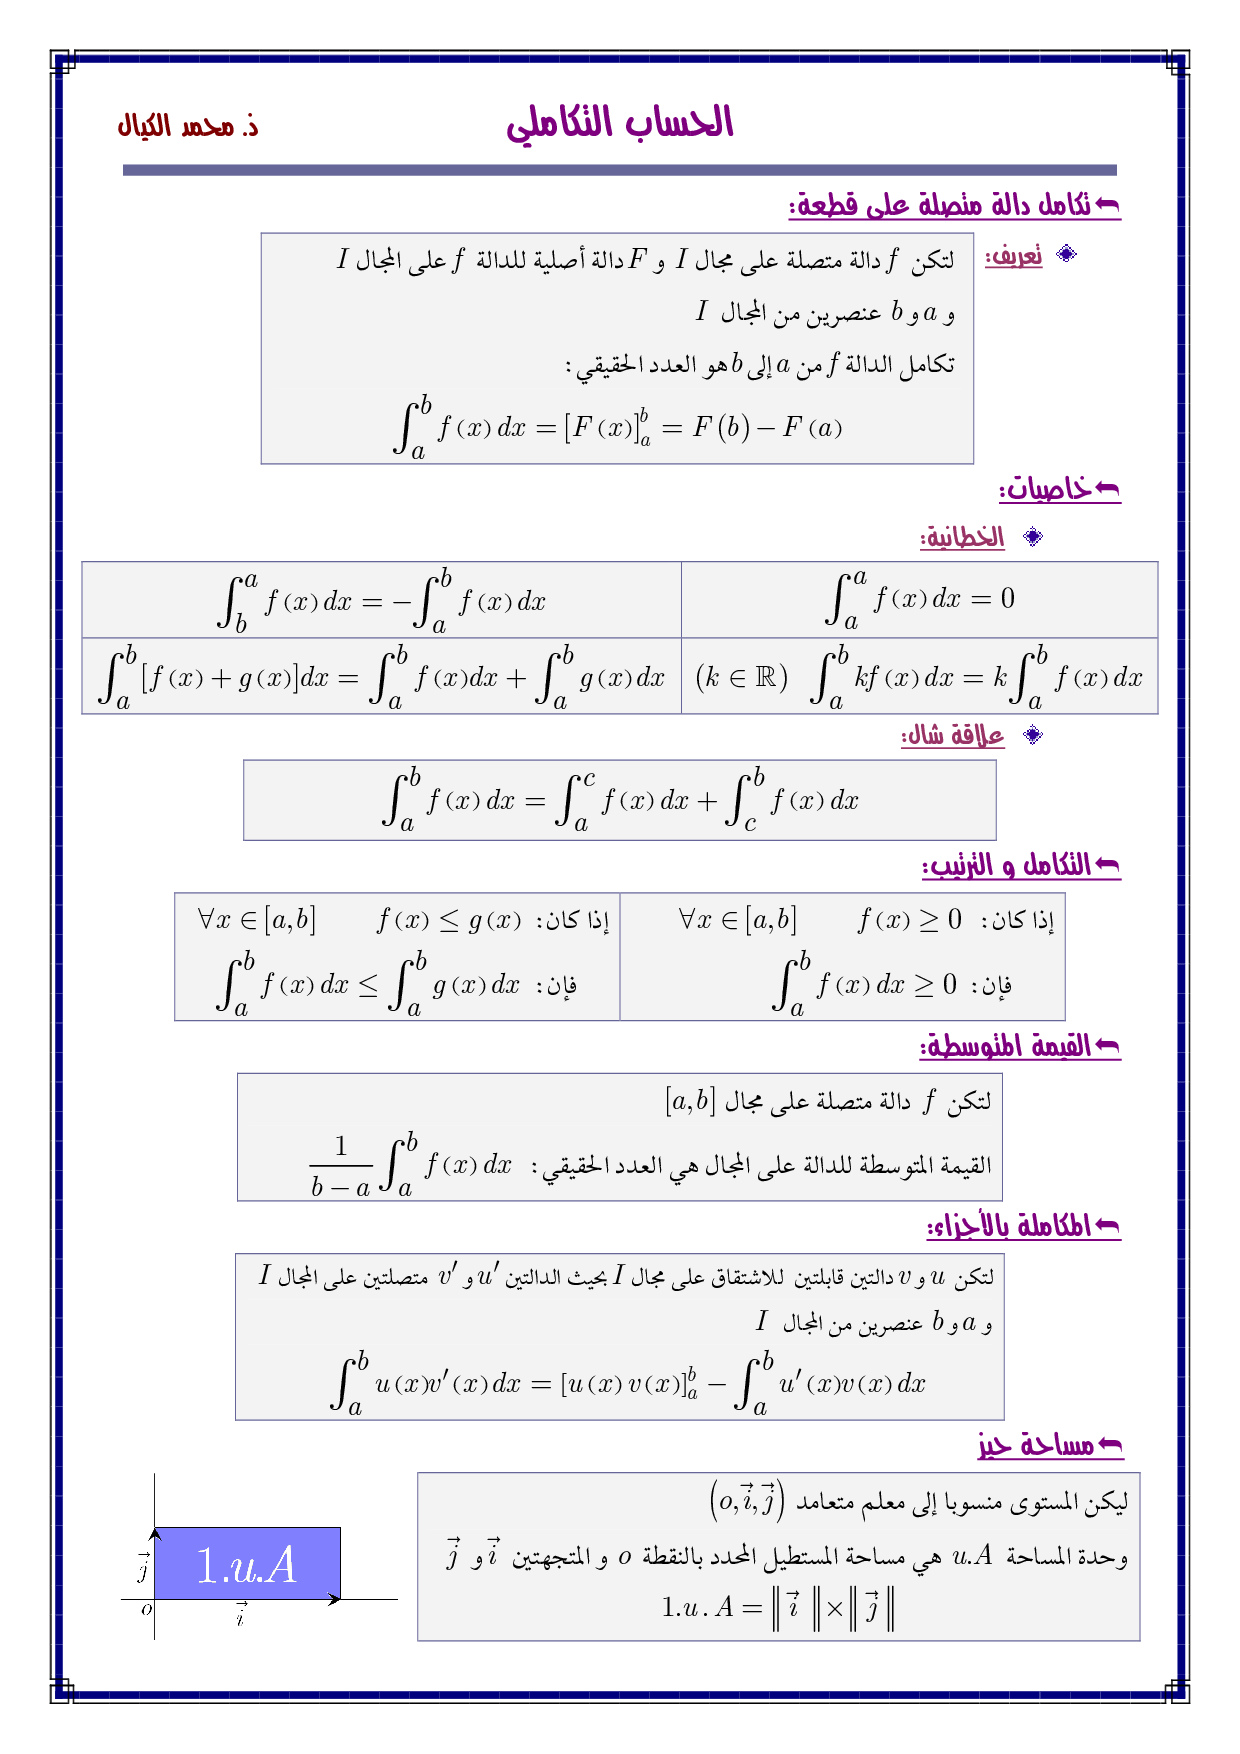 الحساب التكاملي
ذ. محمد الكيال
تكامل دالة متصلة على قطعة:
تعريف:
لتكن f دالة متصلة على مجال I و F دالة أصلية للدالة f على المجال I
و a و b عنصرين من المجال I
تكامل الدالة f من a إلى b هو العدد الحقيقي:
∫_a^b f(x)dx = [F(x)]_a^b = F(b) − F(a)
خاصيات:
الخطانية:
∫_a^a f(x)dx = 0
∫_b^a f(x)dx = −∫_a^b f(x)dx
(k ∈ ℝ) ∫_a^b kf(x)dx = k∫_a^b f(x)dx
∫_a^b [f(x) + g(x)]dx = ∫_a^b f(x)dx + ∫_a^b g(x)dx
علاقة شال:
∫_a^b f(x)dx = ∫_a^c f(x)dx + ∫_c^b f(x)dx
التكامل و الترتيب:
إذا كان: ∀x ∈ [a,b] f(x) ≥ 0
فإن: ∫_a^b f(x)dx ≥ 0
إذا كان: ∀x ∈ [a,b] f(x) ≤ g(x)
فإن: ∫_a^b f(x)dx ≤ ∫_a^b g(x)dx
القيمة المتوسطة:
لتكن f دالة متصلة على مجال [a,b]
القيمة المتوسطة للدالة على المجال هي العدد الحقيقي: 1/(b − a) ∫_a^b f(x)dx
المكاملة بالأجزاء:
لتكن u و v دالتين قابلتين للاشتقاق على مجال I بحيث الدالتين u′ و v′ متصلتين على المجال I
و a و b عنصرين من المجال I
∫_a^b u(x)v′(x)dx = [u(x)v(x)]_a^b − ∫_a^b u′(x)v(x)dx
مساحة حيز
ليكن المستوى منسوبا إلى معلم متعامد (o, i⃗, j⃗)
وحدة المساحة u.A هي مساحة المستطيل المحدد بالنقطة o و المتجهتين i⃗ و j⃗
1.u.A = ‖i⃗‖ × ‖j⃗‖
1.u.A
j⃗
o
i⃗